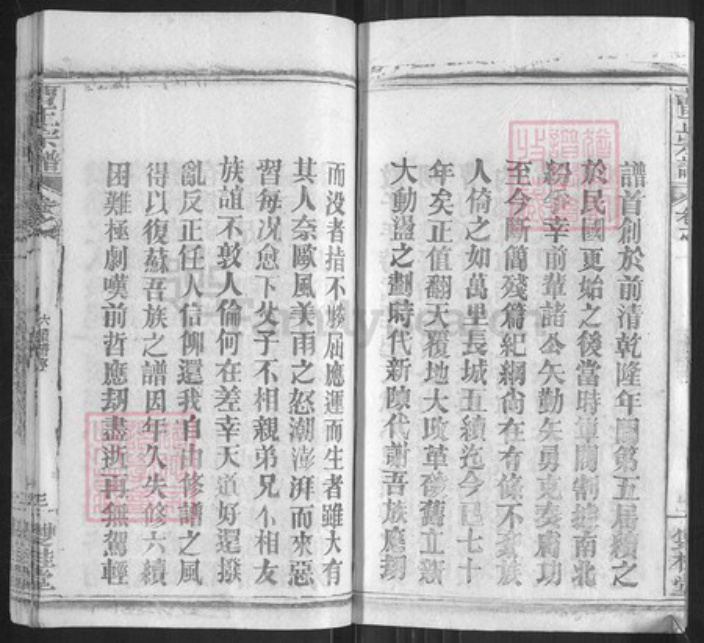 譜首創於前清乾隆年間第五屆續之
於民國更始之後當時軍閥割據南北
紛爭幸前輩諸公矢勤矢勇克奏膚功
至今斷簡殘篇紀綱尚在有條不紊族
人倚之如萬里長城五續迄今已七十
年矣正值翻天覆地大改革破舊立新
大動盪之劃時代新陳代謝吾族應劫
而没者指不勝屈應運而生者雖大有
其人奈歐風美雨之怒潮澎湃而來惡
習每况愈下父子不相親弟兄不相友
族誼不敦人倫何在差幸天道好還撥
亂反正任人信仰還我自由修譜之風
得以復蘇吾族之譜因年久失修六續
困難極劇嘆前哲應劫盡逝再無駕輕
宗譜
六續譜序
三
雙桂堂